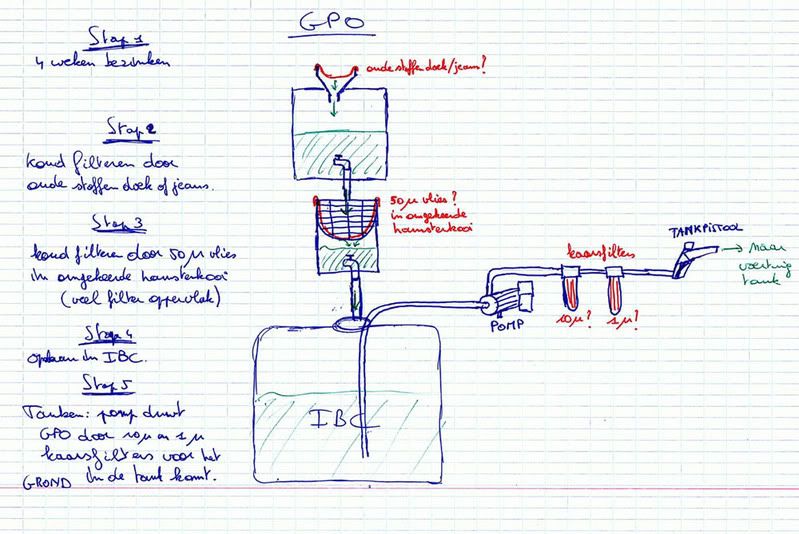 GPO
Stap 1
4 weken bezinken
oude stoffen doek/jeans?
Stap 2
koud filteren door
oude stoffen doek of jeans.
50 µ vlies?
in omgekeerde
hamsterkooi
Stap 3
koud filteren door 50 µ vlies
in omgekeerde hamsterkooi
(veel filter oppervlak)
TANKPISTOOL
naar
voertuig
tank
kaarsfilters
10µ?
1µ?
POMP
Stap 4
opslaan in IBC.
Stap 5
Tanken: pomp duwt
GPO door 10µ en 1µ
kaarsfilters voor het
in de tank komt.
GROND
IBC